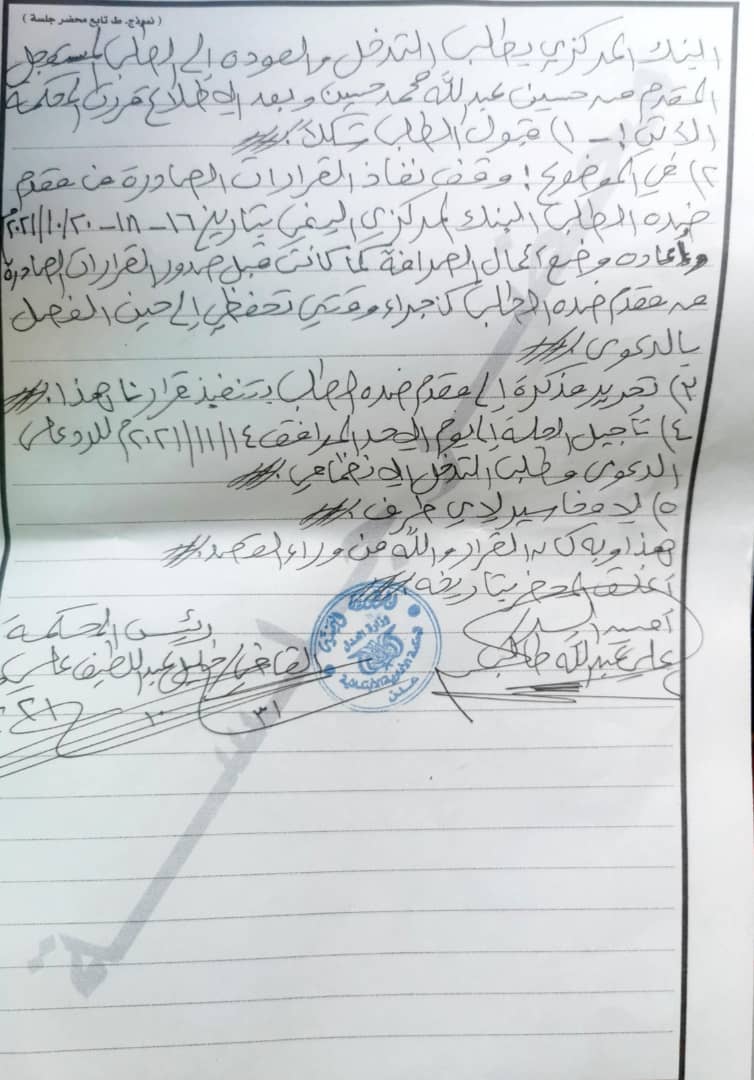 ( نموذج. ط. تابع محضر جلسة )
البنك المركزي يطلب التدخل والعودة إلى الطلب المستعجل
المقدم من حسين عبدالله محمد حسين وبعد الإطلاع قررت المحكمة
الآتي :- ١) قبول الطلب شكلاً .
٢) في الموضوع : وقف نفاذ القرارات الصادرة من مقدم
ضده الطلب البنك المركزي اليمني بتاريخ ١٦-١٨-٢٠/١٠/٢٠٢١م
وإعادة وضع أعمال الصرافة كما كانت قبل صدور القرارات الصادرة
من مقدم ضده الطلب كإجراء وقتي تحفظي إلى حين الفصل
بالدعوى .
٣) تحرير مذكرة إلى مقدم ضده الطلب بتنفيذ قرارنا هذا .
٤) تأجيل الجلسة إلى يوم الأحد الموافق ١٤/١١/٢٠٢١م للرد على
الدعوى وطلب التدخل الإنضمامي .
٥) لا مخاسير لأي طرف .
هذا وبه كان القرار والله من وراء القصد .
أغلق المحضر بتاريخه .
أمين السر
رئيس المحكمة
علي عبدالله طالب
القاضي / عبداللطيف علي
وزارة العدل
عدن
٣١ ١٠ ٢١
محضر جلسة